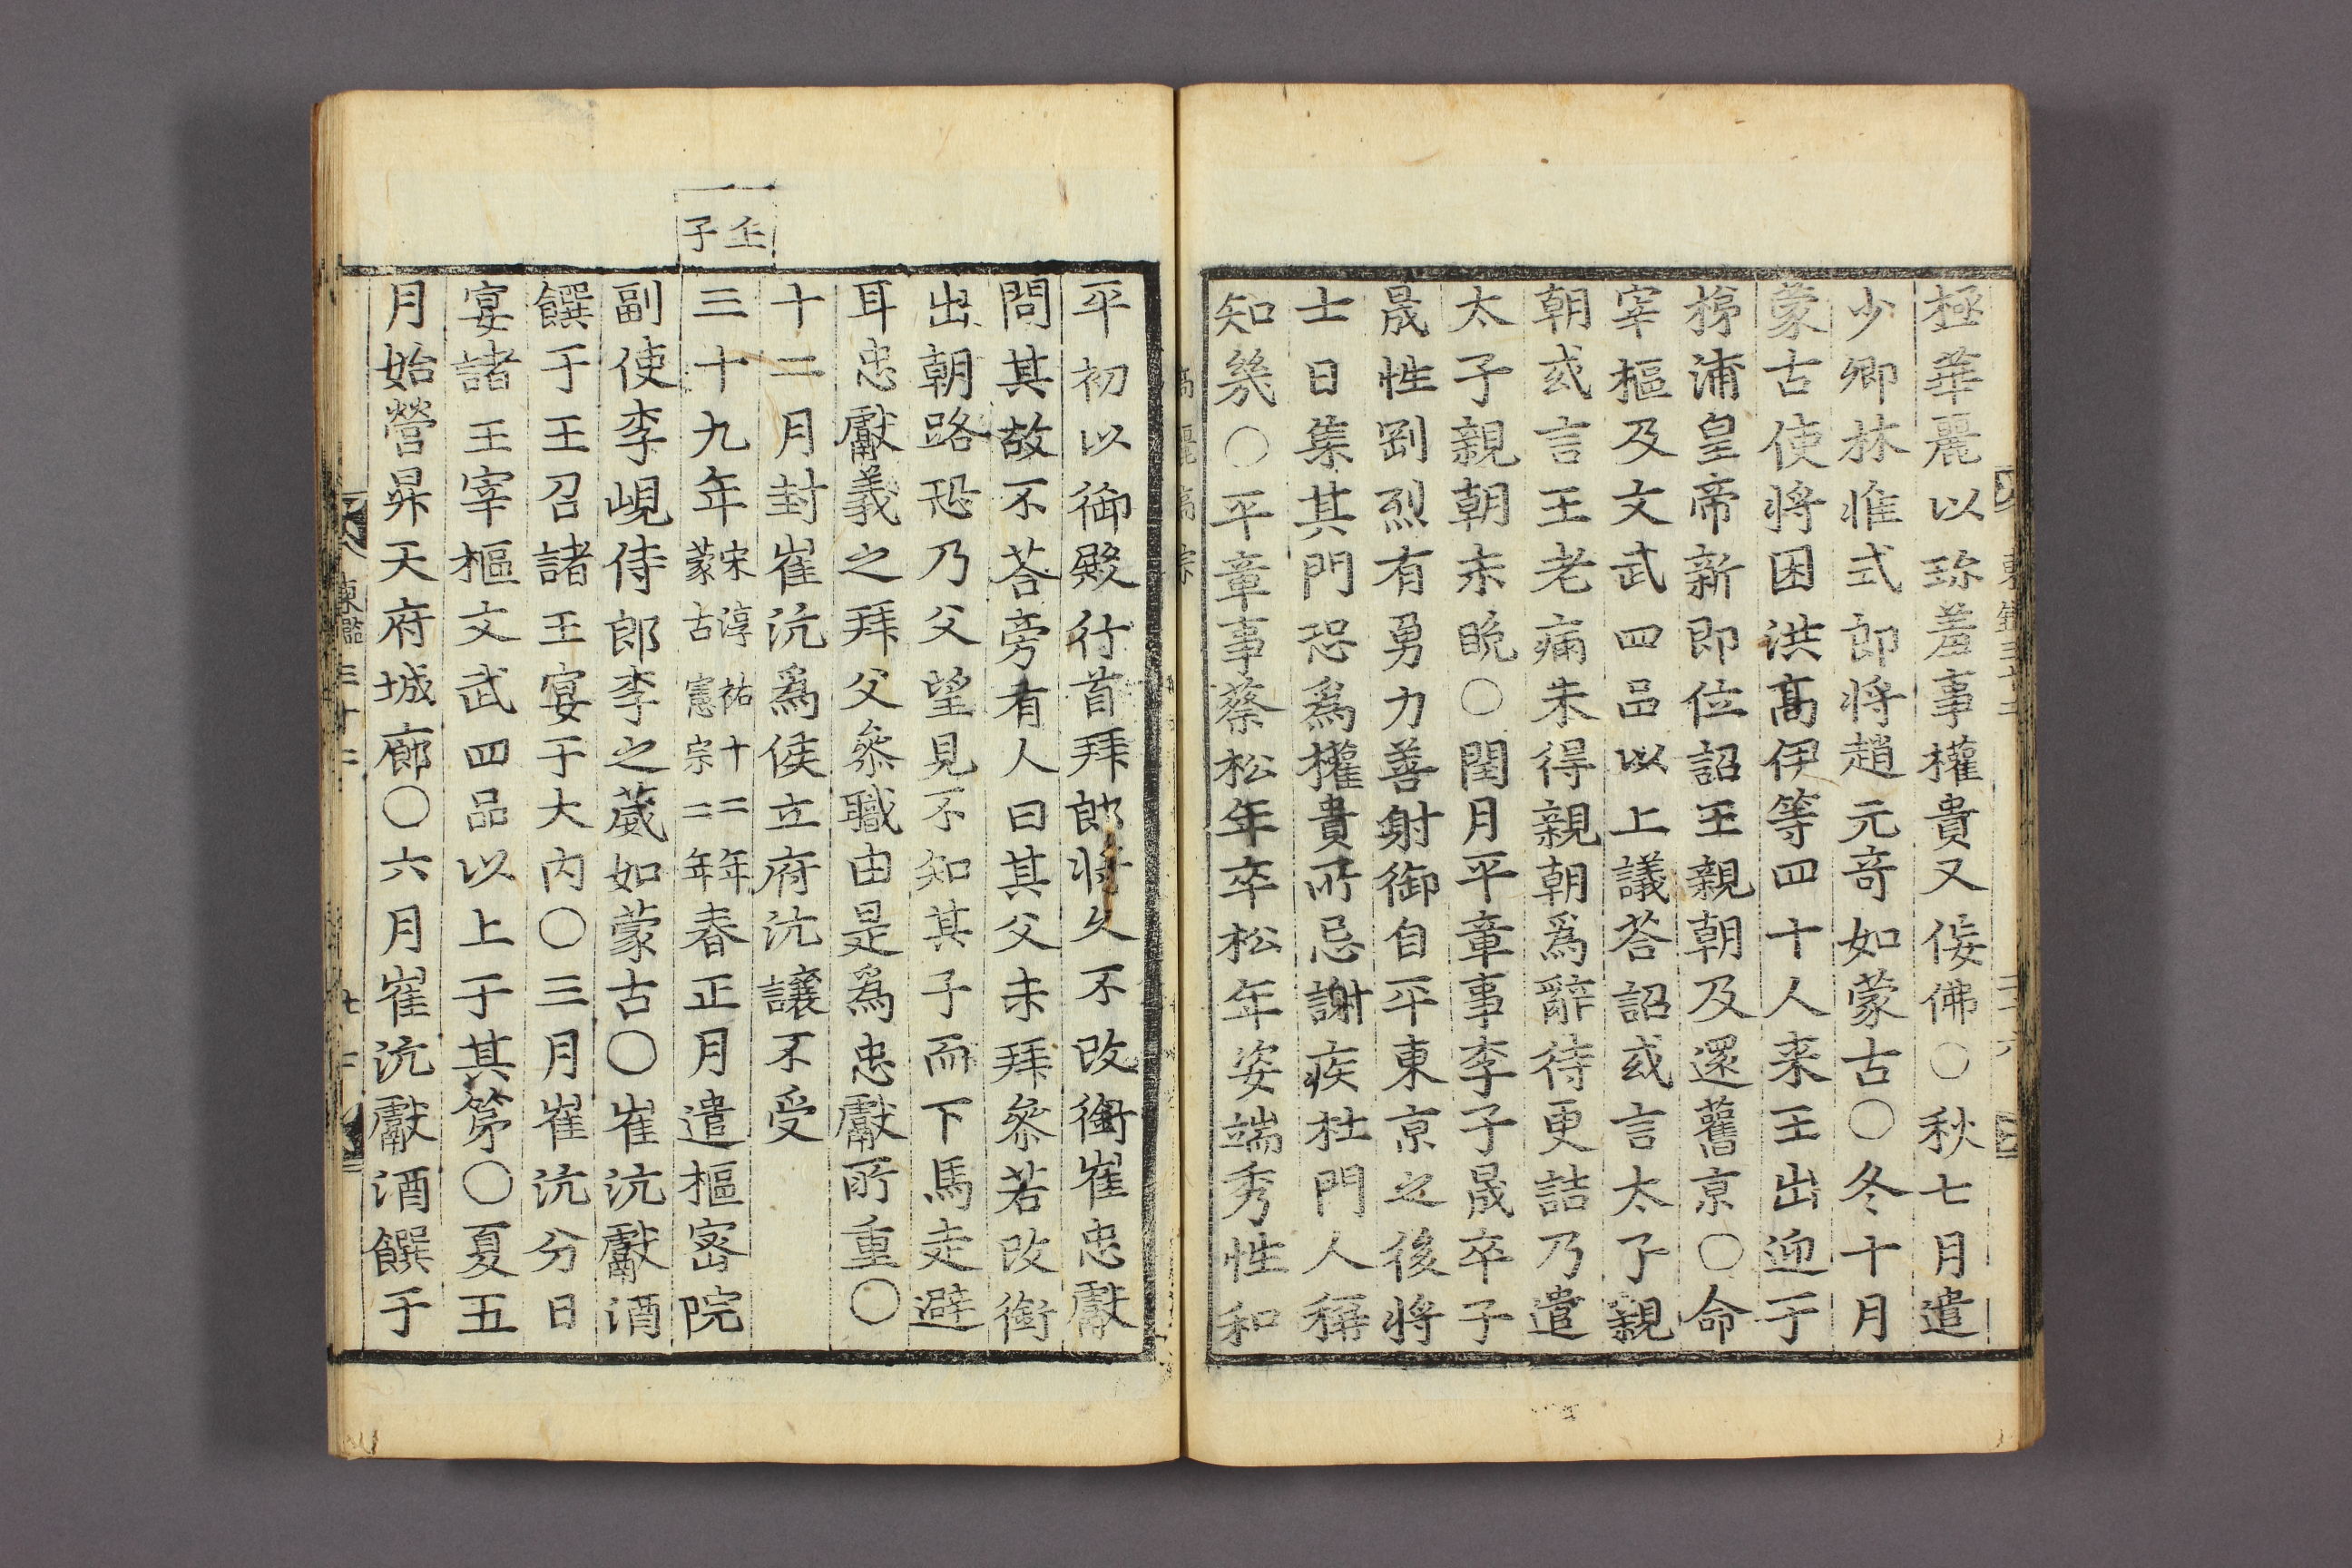 極華麗以珎羞事權貴又侫佛○秋七月遣
少卿林惟式郎将趙元竒如蒙古○冬十月
蒙古使将困洪髙伊等四十人来王出迎于
梯浦皇帝新即位詔王親朝及還舊京○命
宰樞及文武四品以上議荅詔或言太子親
朝或言王老病未得親朝爲辭待更詰乃遣
太子親朝未晩○閏月平章事李子晟卒子
晟性剛烈有勇力善射御自平東京之後將
士日集其門恐爲權貴所忌謝疾杜門人稱
知幾○平章事蔡松年卒松年姿端秀性和
高麗高宗
平初以御殿行首拜郎将久不改銜崔忠獻
問其故不荅旁有人曰其父未拜叅若改銜
出朝路恐乃父望見不知其子而下馬走避
耳忠獻義之拜父叅職由是爲忠獻所重○
十二月封崔沆爲侯立府沆讓不受
壬子
三十九年宋淳祐十二年蒙古憲宗二年春正月遣樞宻院
副使李峴侍郎李之葳如蒙古○崔沆獻酒
饌于王召諸王宴于大內○三月崔沆分日
宴諸王宰樞文武四品以上于其第○夏五
月始營昇天府城廊○六月崔沆獻酒饌于
東鑑三十二